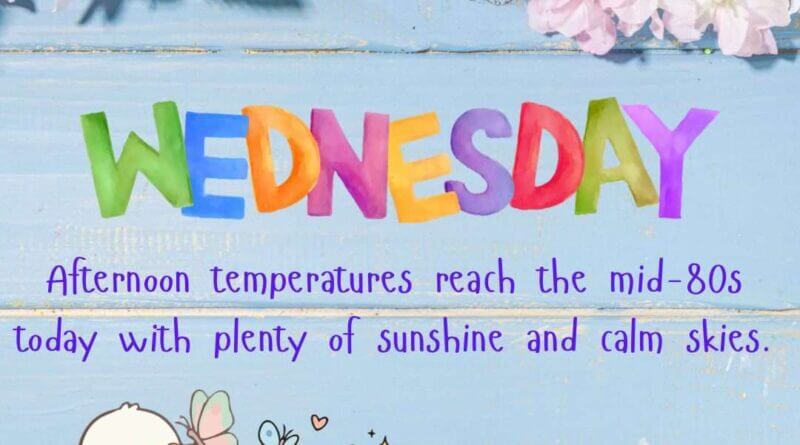 WEDNESDAY
Afternoon temperatures reach the mid-80s
today with plenty of sunshine and calm skies.